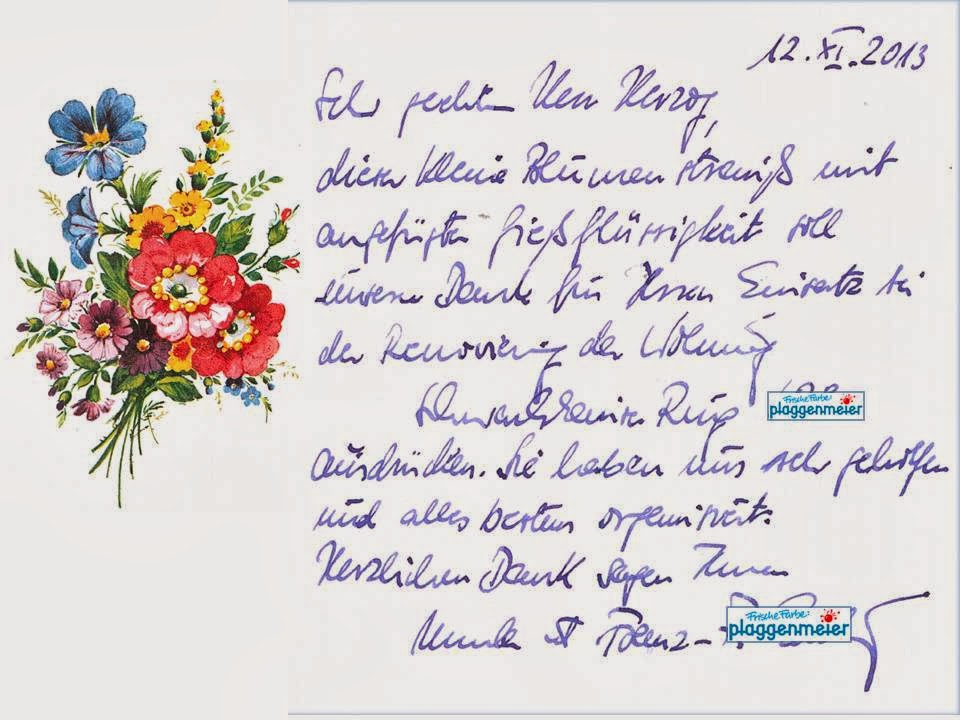 12.XI.2013
Sehr geehrter Herr Herzog,
dieser kleine Blumenstrauß mit
angefügter Gießflüssigkeit soll
unseren Dank für Ihren Einsatz bei
der Renovierung der Wohnung
Ring
Frische Farbe:
plaggenmeier
ausdrücken. Sie haben uns sehr geholfen
und alles bestens organisiert.
Herzlichen Dank sagen Ihnen
Frische Farbe:
plaggenmeier